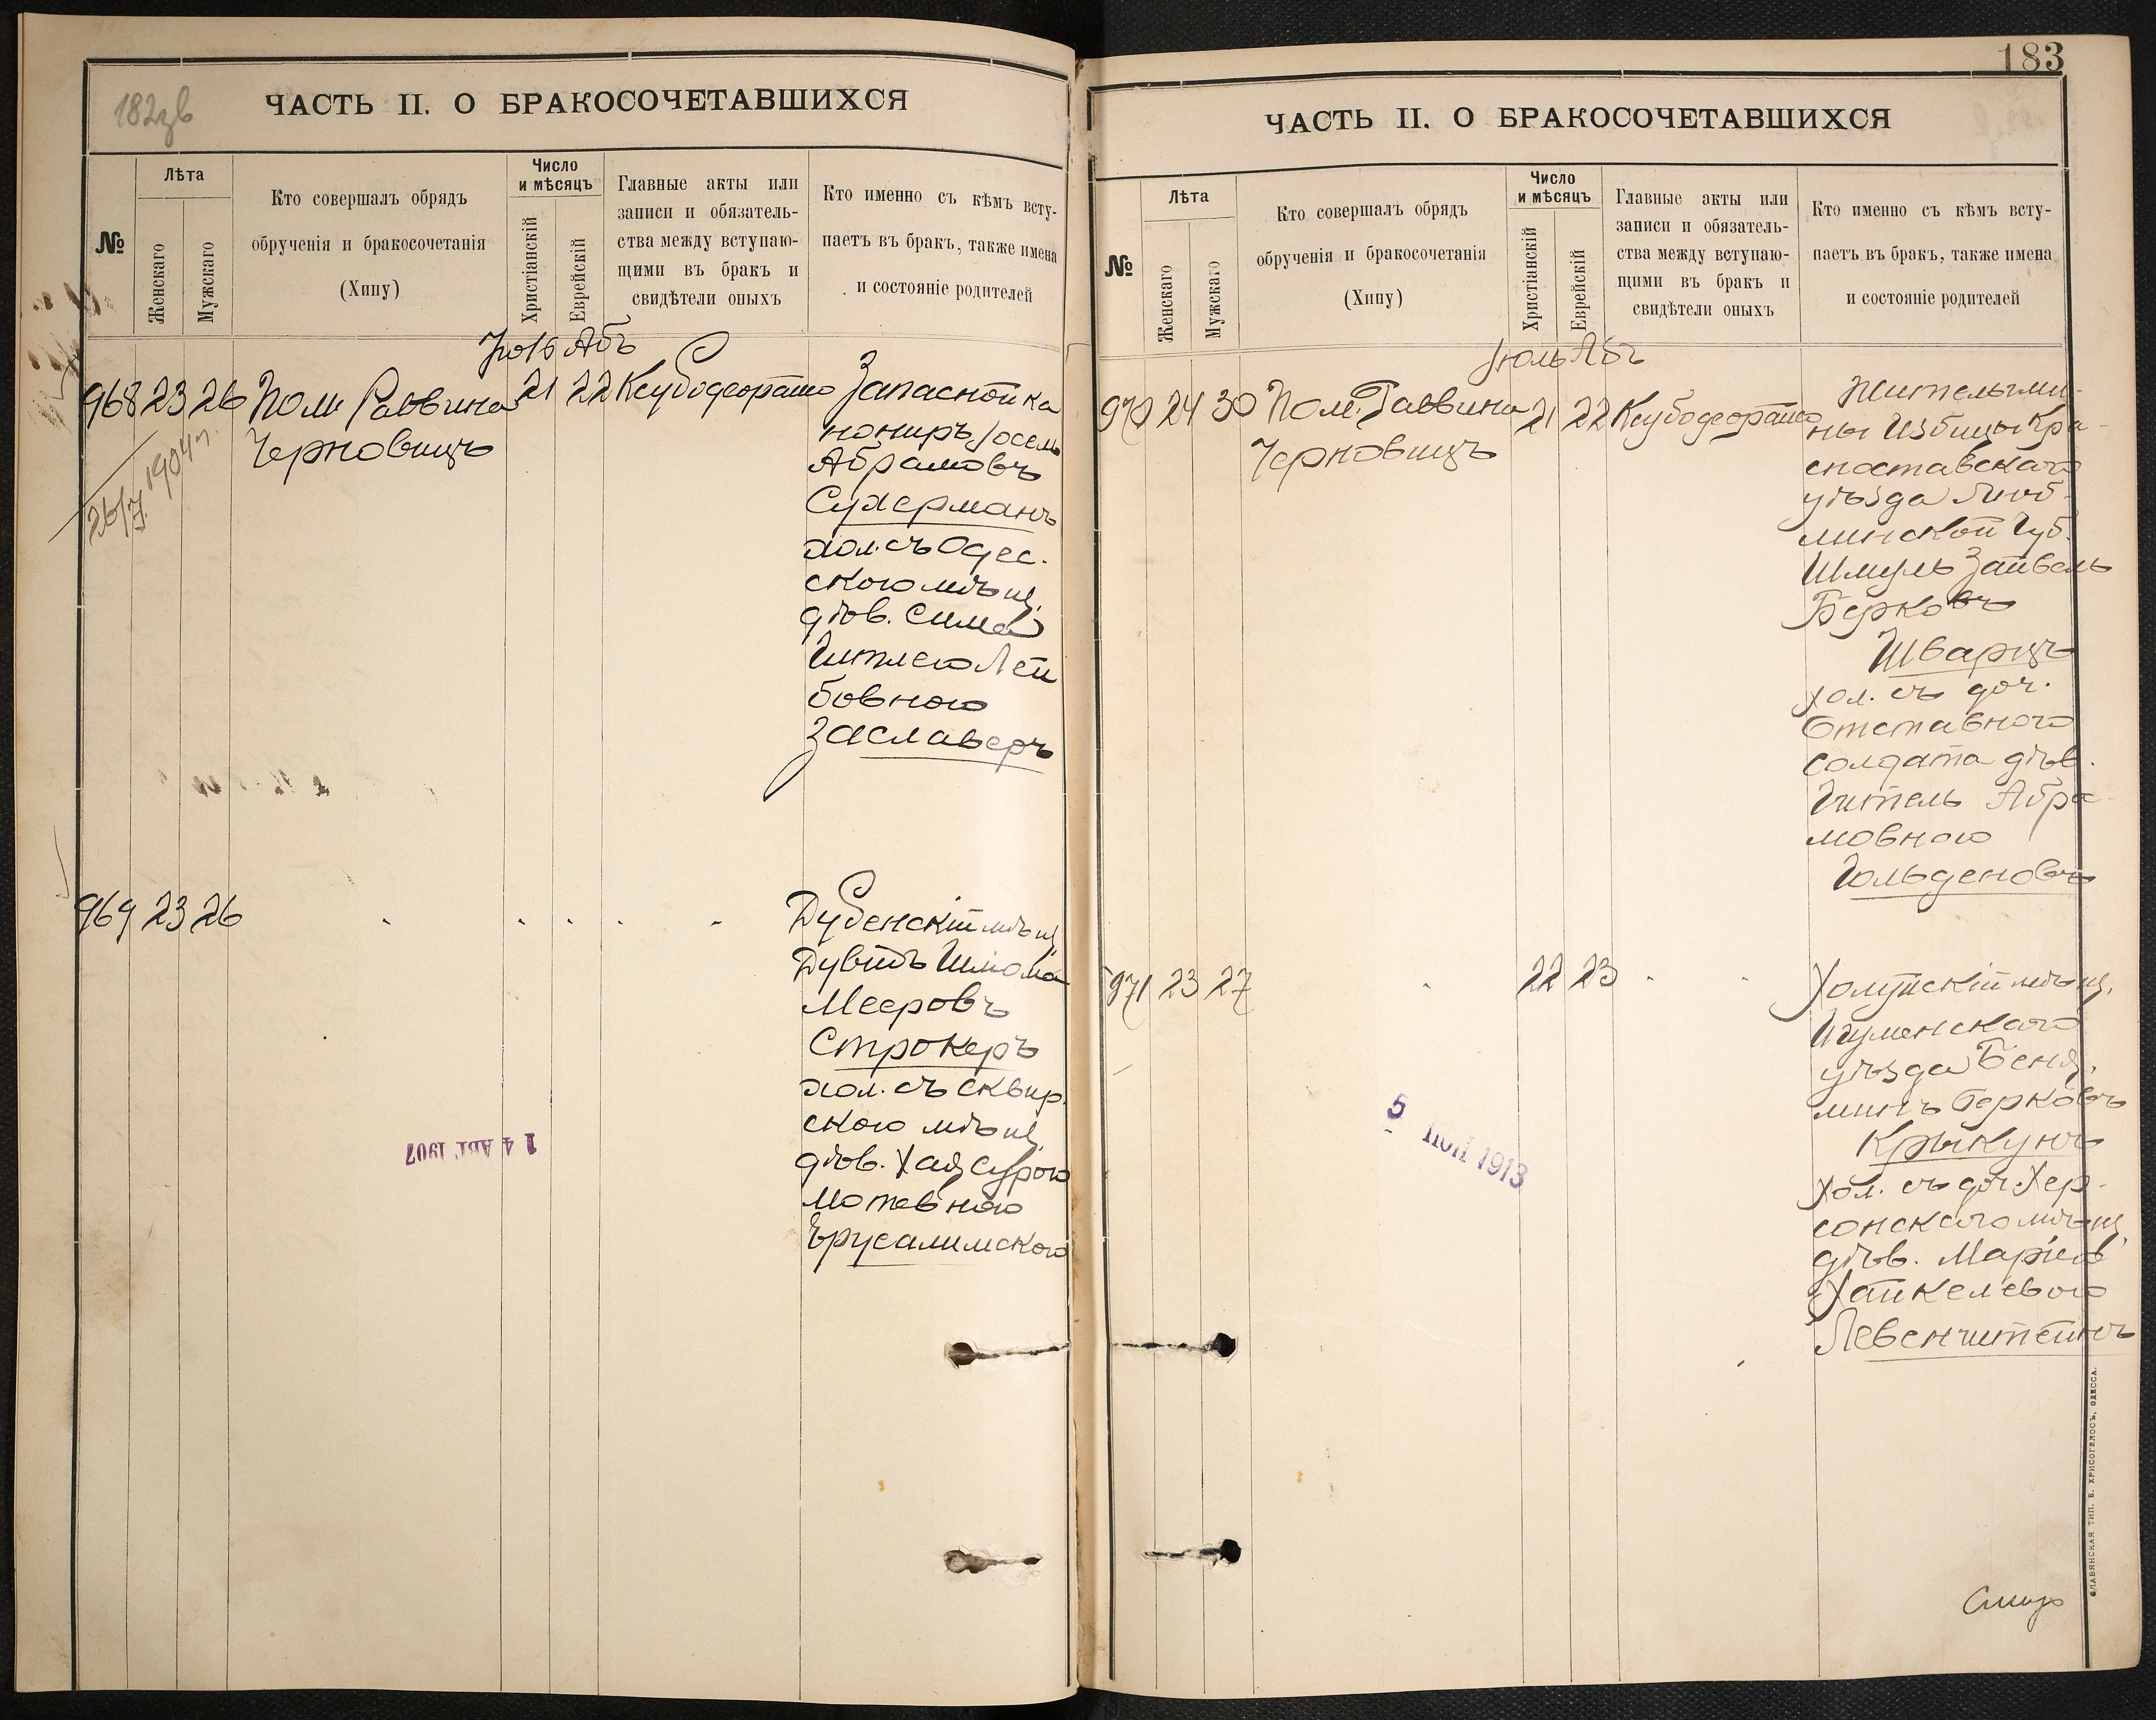 182зв
ЧАСТЬ II. О БРАКОСОЧЕТАВШИХСЯ
№
Лѣта
Женскаго
Мужскаго
Кто совершалъ обрядъ
обрученія и бракосочетанія
(Хипу)
Число
и мѣсяцъ
Христіанскій
Еврейскій
Главные акты или
записи и обязатель-
ства между вступаю-
щими въ бракъ и
свидѣтели оныхъ
Кто именно съ кѣмъ всту-
паетъ въ бракъ, также имена
и состояніе родителей
Абъ
968 23 26 Пом. Раввина 21 22 Ксубодеорайто
Черновицъ
26/7. 1904 г.
Запасной ка
нониръ Іосель
Абрамовъ
Сухерманъ
хол. съ Одес.
скою мѣщ.
дѣв. Симой
Гитлею Лей
бовною
Заславеръ
969 23 26
Дубенскій мѣщ.
Дувидъ Шліома
Мееровъ
Строкеръ
хол. съ Сквир.
скою мѣщ.
дѣв. Хая Сурою
Мотевною
Ерусалимскою
14 АВГ. 1907
183
ЧАСТЬ II. О БРАКОСОЧЕТАВШИХСЯ
№
Лѣта
Женскаго
Мужскаго
Кто совершалъ обрядъ
обрученія и бракосочетанія
(Хипу)
Число
и мѣсяцъ
Христіанскій
Еврейскій
Главные акты или
записи и обязатель-
ства между вступаю-
щими въ бракъ и
свидѣтели оныхъ
Кто именно съ кѣмъ всту-
паетъ въ бракъ, также имена
и состояніе родителей
Іюль Абъ
970 24 30 Пом. Раввина 21 22 Ксубодеорайто
Черновицъ
Житель гми-
ны Избицы Кра-
сноставскаго
уѣзда Люб-
линской Губ.
Шмуль Зайвель
Берковъ
Шварцъ
хол. съ доч.
Отставного
солдата дѣв.
Гитель Абра-
мовною
Гольденовъ
971 23 27 22 23
Холуйскій мѣщ.
Игуменскаго
уѣзда Беня.
минъ Берковъ
Крыкунъ
Хол. съ доч. Хер-
сонскаго мѣщ.
дѣв. Маріей
Хайкелевою
Левенштейнъ
5 1913
СЛАВЯНСКАЯ ТИП. Е. ХРИСОГЕЛОСЪ, ОДЕССА.